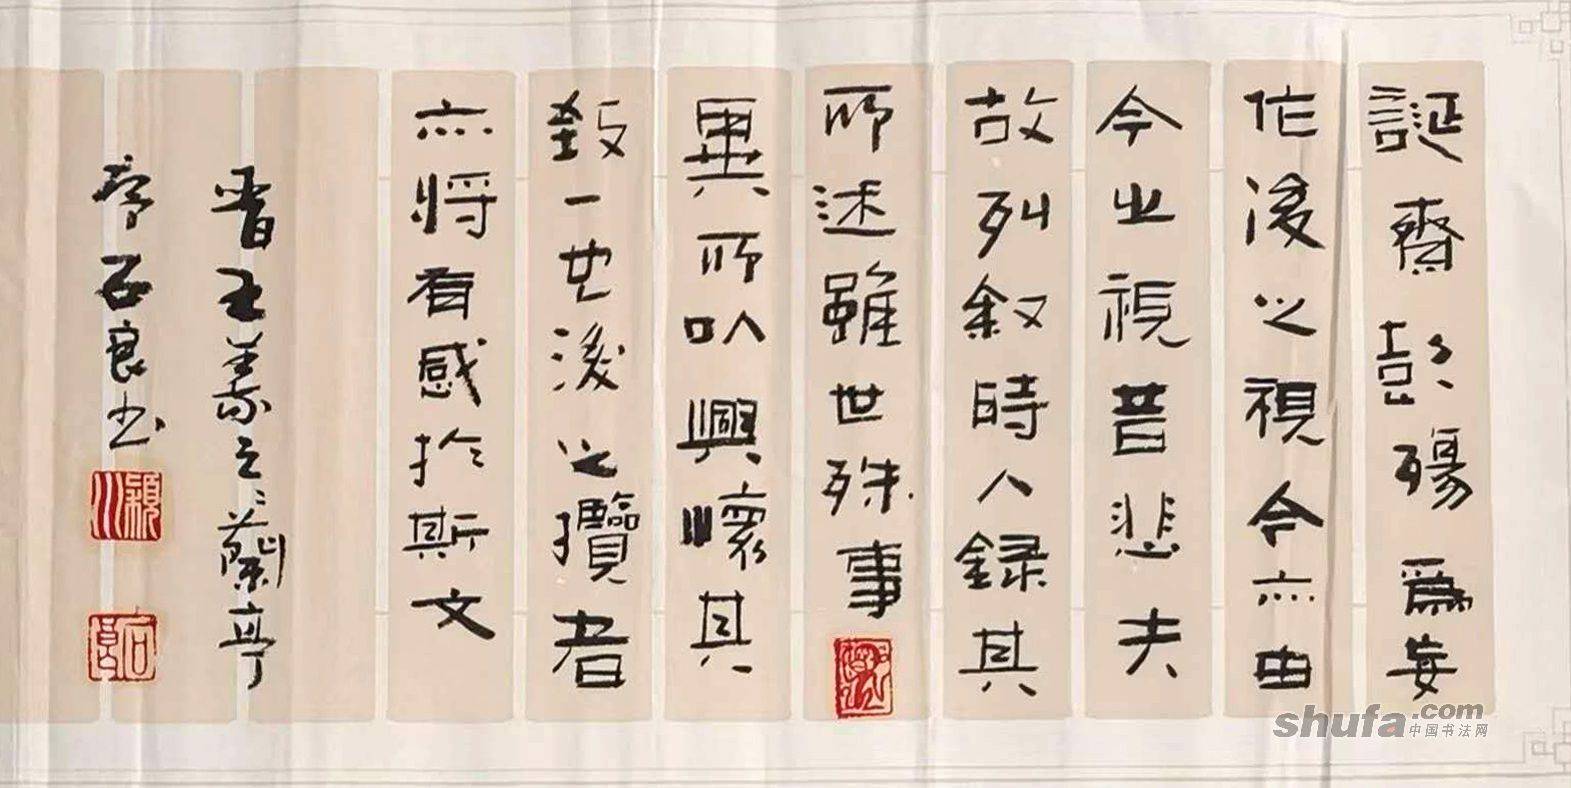 誕齊彭殤爲妄
作後之視今亦由
今之視昔悲夫
故列叙時人録其
所述雖世殊事
異所以興懷其
致一也後之攬者
亦將有感於斯文
晉王羲之蘭亭
序石良书
潁川
石良
shufa.com
中国书法网